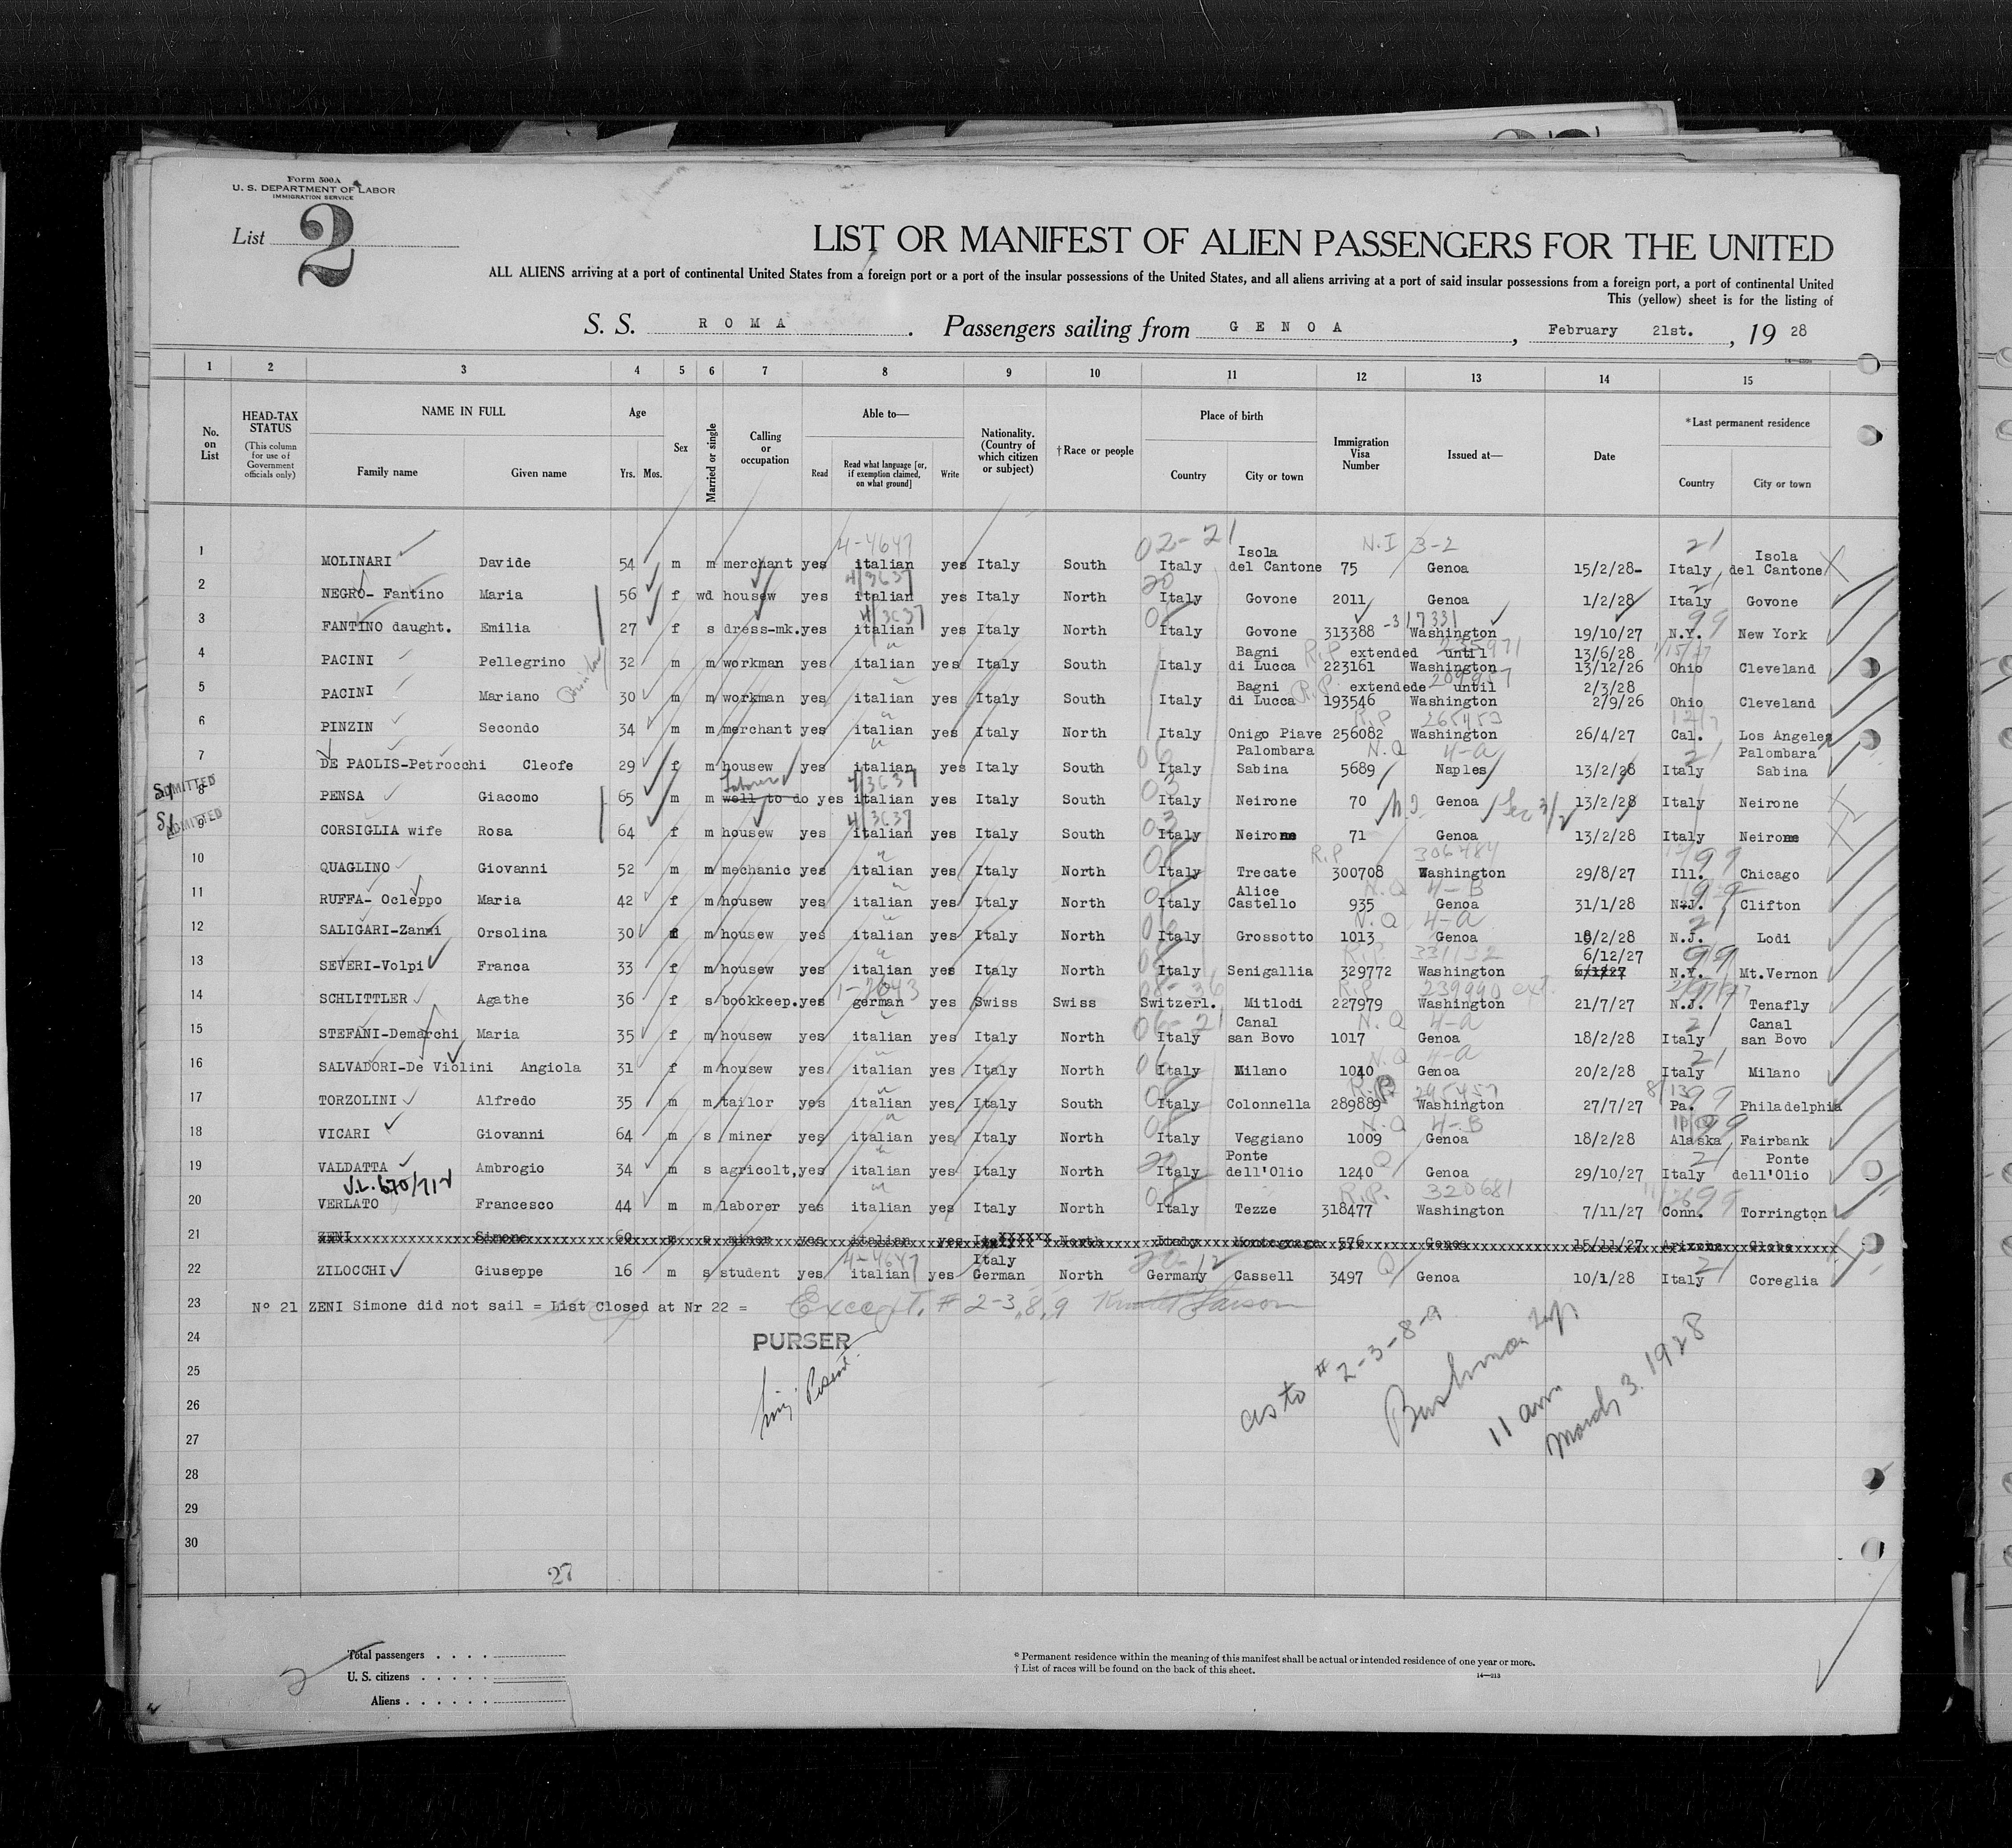 Form 500A
U. S. DEPARTMENT OF LABOR
IMMIGRATION SERVICE
List 2
LIST OR MANIFEST OF ALIEN PASSENGERS FOR THE UNITED
ALL ALIENS arriving at a port of continental United States from a foreign port or a port of the insular possessions of the United States, and all aliens arriving at a port of said insular possessions from a foreign port, a port of continental United
This (yellow) sheet is for the listing of
S. S. ROMA. Passengers sailing from GENOA, February 21st., 19 28
1 2 3 4 5 6 7 8 9 10 11 12 13 14 15
No. on List
HEAD-TAX STATUS (This column for use of Government officials only)
NAME IN FULL Family name Given name
Age Yrs. Mos.
Sex
Married or single
Calling or occupation
Able to— Read Read what language [or, if exemption claimed, on what ground] Write
Nationality. (Country of which citizen or subject)
†Race or people
Place of birth Country City or town
Immigration Visa Number
Issued at—
Date
*Last permanent residence Country City or town
4-4647 02-21 N.I 3-2 21
1 MOLINARI Davide 54 m m merchant yes italian yes Italy South Italy Isola del Cantone 75 Genoa 15/2/28- Italy, Isola del Cantone
4/3637 20 21
2 NEGRO- Fantino Maria 56 f wd housew yes italian yes Italy North Italy Govone 2011 Genoa 1/2/28 Italy Govone
4/3637 99
3 FANTINO daught. Emilia 27 f s dress-mk. yes italian yes Italy North Italy Govone 313388 Washington 19/10/27 N.Y. New York
4 PACINI Pellegrino 32 m m workman yes italian yes Italy South Italy Bagni di Lucca R.P extended until 13/6/28 223161 Washington 13/12/26 Ohio Cleveland
5 PACINI Mariano 30 m m workman yes italian yes Italy South Italy Bagni di Lucca R.P. extendede until 2/3/28 193546 Washington 2/9/26 Ohio Cleveland
R.P 265453
6 PINZIN Secondo 34 m m merchant yes italian yes Italy North Italy Onigo Piave 256082 Washington 26/4/27 Cal. Los Angeles
06 N.Q 4-a 21
7 DE PAOLIS-Petrocchi Cleofe 29 f m housew yes italian yes Italy South Italy Palombara Sabina 5689 Naples 13/2/28 Italy Palombara Sabina
ADMITTED Laborer 4/3637 03
8 PENSA Giacomo 65 m m well to do yes italian yes Italy South Italy Neirone 70 Genoa 13/2/28 Italy Neirone
ADMITTED 4/3637 03
9 CORSIGLIA wife Rosa 64 f m housew yes italian yes Italy South Italy Neirone 71 Genoa 13/2/28 Italy Neirone
R.P 306484 99
10 QUAGLINO Giovanni 52 m m mechanic yes italian yes Italy North Italy Trecate 300708 Washington 29/8/27 Ill. Chicago
N.Q 4-B 99
11 RUFFA- Ocleppo Maria 42 f m housew yes italian yes Italy North Italy Alice Castello 935 Genoa 31/1/28 N.J. Clifton
N.Q 4-a 21
12 SALIGARI-Zanni Orsolina 30 f m housew yes italian yes Italy North Italy Grossotto 1013 Genoa 18/2/28 N.J. Lodi
R.P. 331132 6/12/27 99
13 SEVERI-Volpi Franca 33 f m housew yes italian yes Italy North Italy Senigallia 329772 Washington N.Y. Mt.Vernon
08-36 R.P 239990 ext.
14 SCHLITTLER Agathe 36 f s bookkeep. yes german yes Swiss Swiss Switzerl. Mitlodi 227979 Washington 21/7/27 N.J. Tenafly
06-21 N.Q 4-a 21
15 STEFANI-Demarchi Maria 35 f m housew yes italian yes Italy North Italy Canal san Bovo 1017 Genoa 18/2/28 Italy Canal san Bovo
06 N.Q 4-a 21
16 SALVADORI-De Violini Angiola 31 f m housew yes italian yes Italy North Italy Milano 1040 Genoa 20/2/28 Italy Milano
R.P 295457 99
17 TORZOLINI Alfredo 35 m m tailor yes italian yes Italy South Italy Colonnella 289889 Washington 27/7/27 Pa. Philadelphia
N.Q 4-B 99
18 VICARI Giovanni 64 m s miner yes italian yes Italy North Italy Veggiano 1009 Genoa 18/2/28 Alaska Fairbank
20 Q 21
19 VALDATTA Ambrogio 34 m s agricolt, yes italian yes Italy North Italy Ponte dell'Olio 1240 Genoa 29/10/27 Italy Ponte dell'Olio
V.L. 670/712 R.P. 320681 99
20 VERLATO Francesco 44 m m laborer yes italian yes Italy North Italy Tezze 318477 Washington 7/11/27 Conn. Torrington
21 ZENI Simone 60 m s miner yes italian yes North Italy 576 Genoa 15/11/27 Arizona Globe
4-4647 Italy 20-12 Q 21
22 ZILOCCHI Giuseppe 16 m s student yes italian yes German North Germany Cassell 3497 Genoa 10/1/28 Italy Coreglia
23 No 21 ZENI Simone did not sail = List Closed at Nr 22 = Except. # 2-3,8,9
24 PURSER
as to # 2-3-8-9
25
26
11 am
27
March 3. 1928
28
29
30
27
Total passengers
U. S. citizens
Aliens
2
* Permanent residence within the meaning of this manifest shall be actual or intended residence of one year or more.
† List of races will be found on the back of this sheet.
14—213